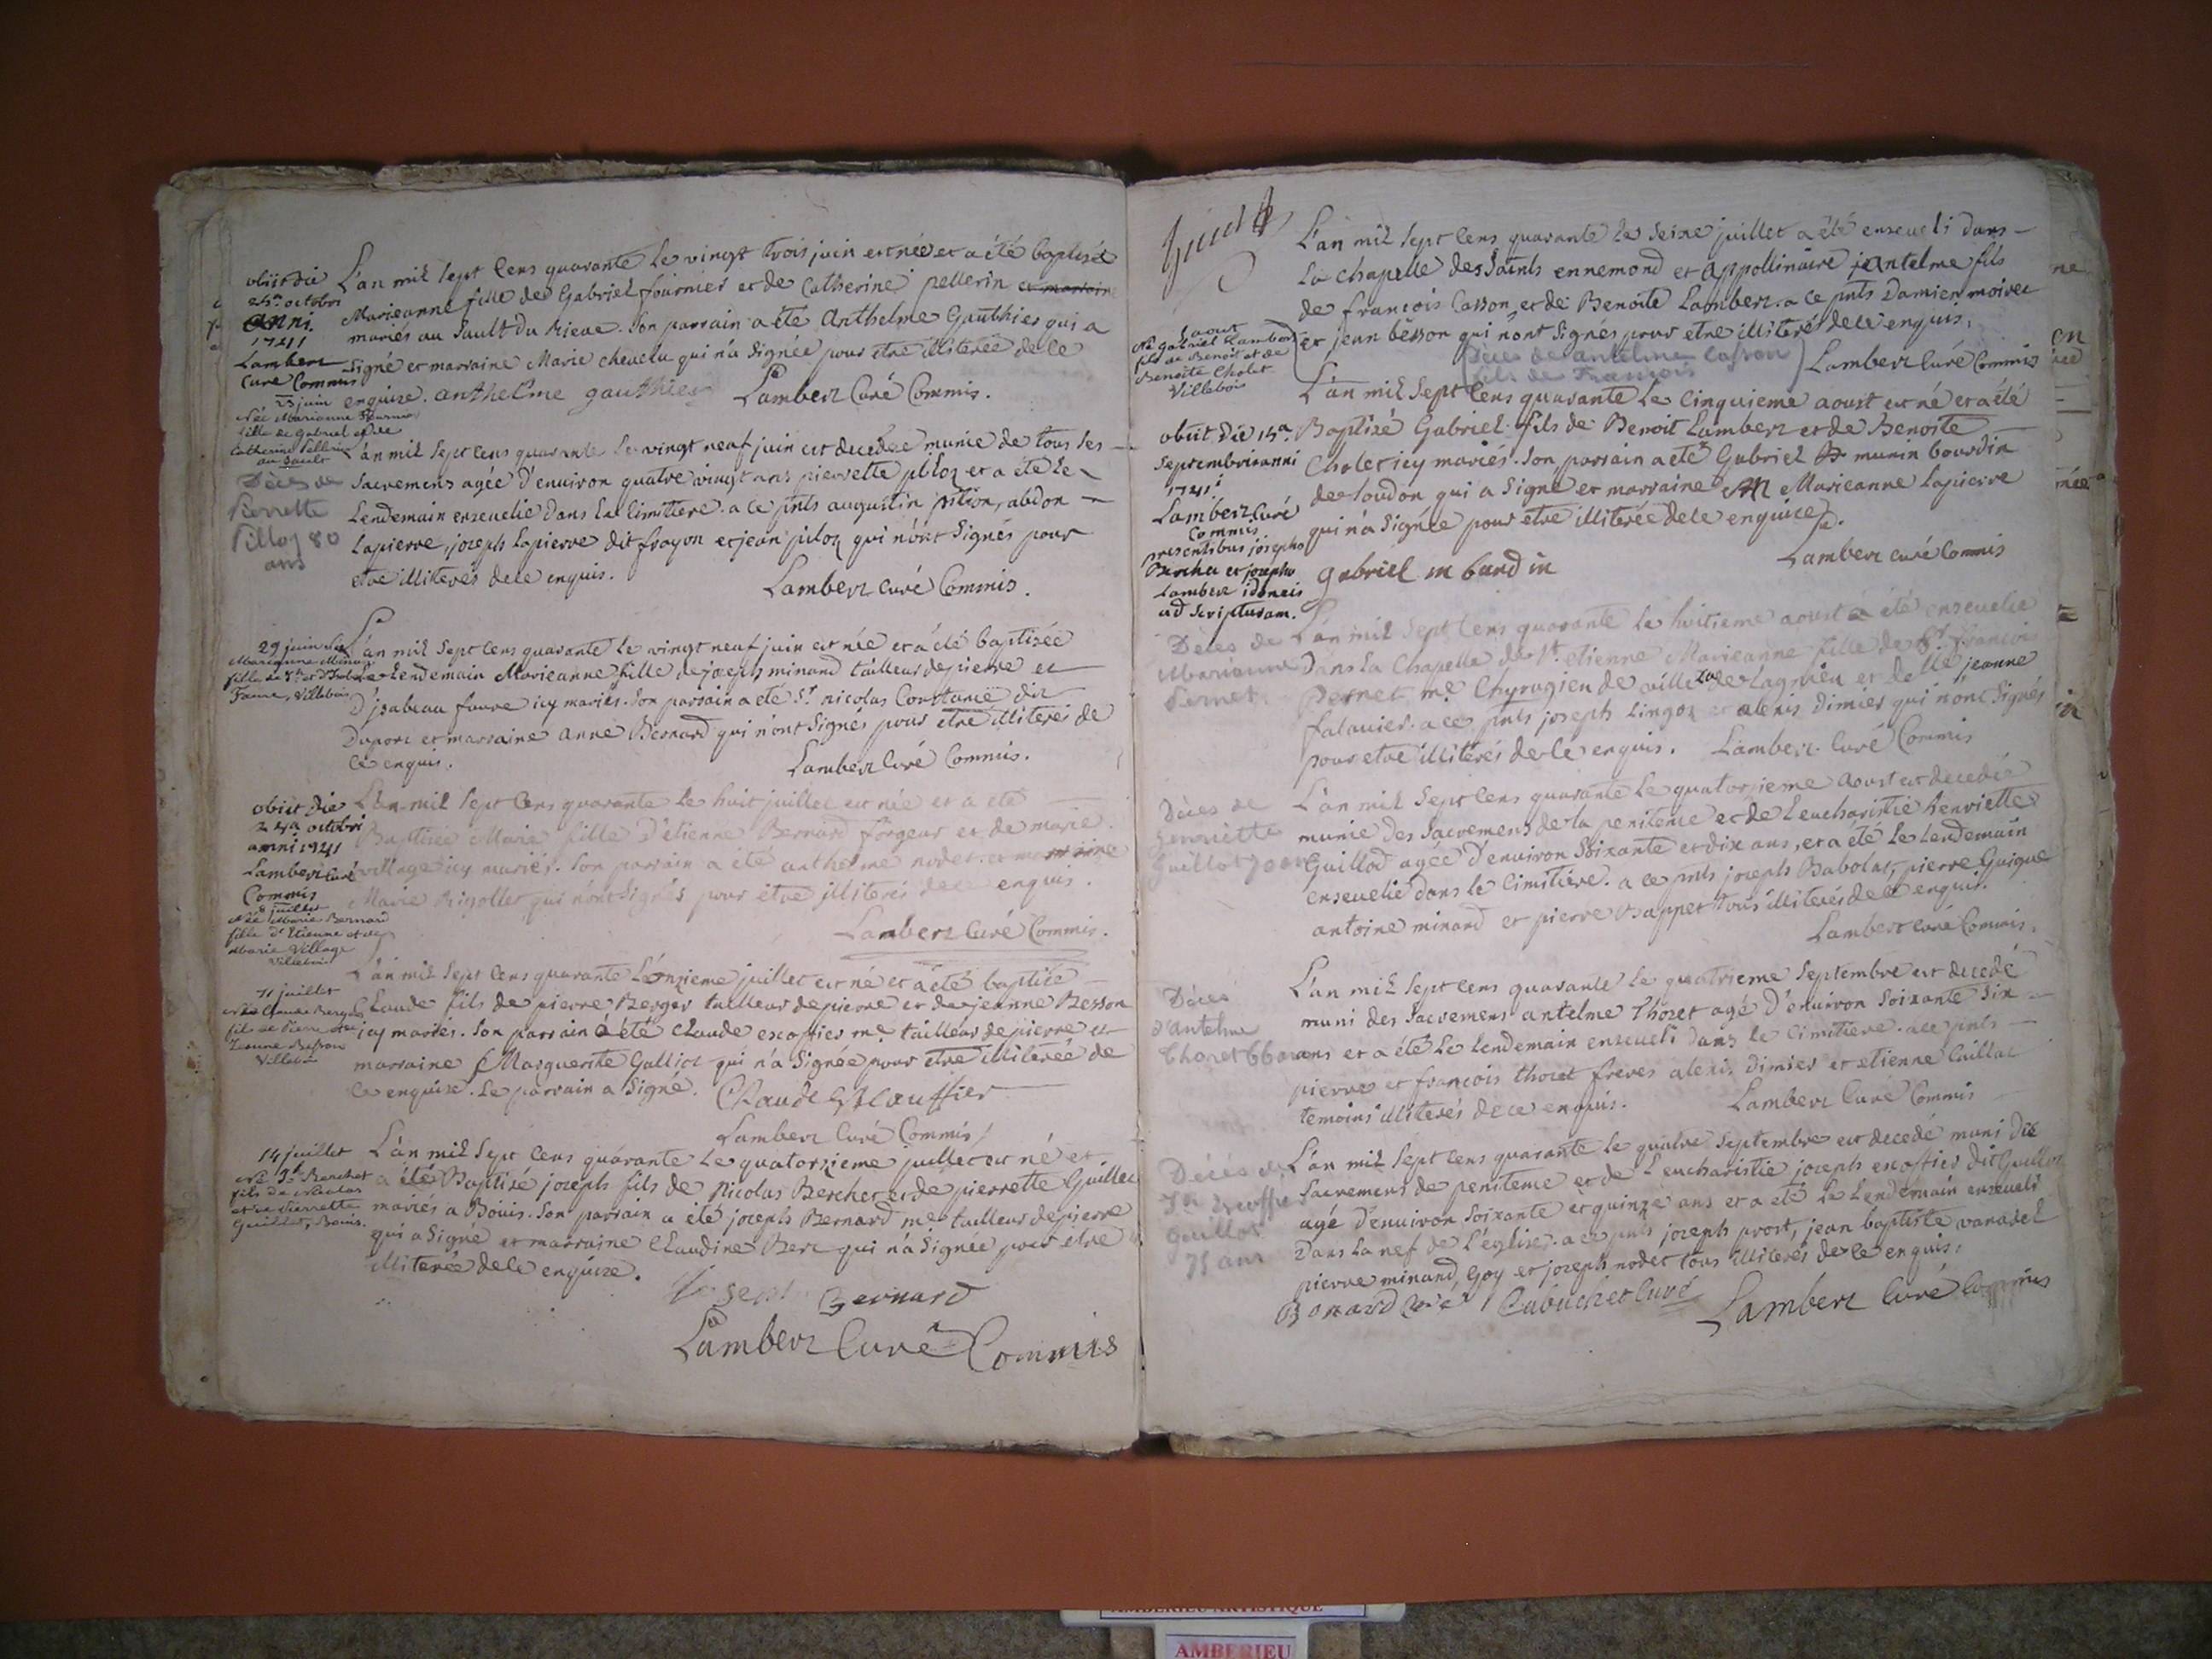 obiit die
24a octobri
anni
1741
Lambert
Curé Commis
23 juin
Née Marianne Fournier
fille de Gabriel et de
Catherine Pellerin
au Sault
L'an mil sept cens quarante le vingt trois juin est née et a été baptisée
Marieanne fille de Gabriel fournier et de Catherine pellerin et marraine
mariés au Sault du rieue. Son parrain a été Anthelme Gauthier qui a
signé et marraine Marie chevelu qui n'a signée pour etre illiterée de ce
enquise. anthelme gauthier Lambert Curé Commis.
Décès de
Perrette
Pilloz 80
ans
L'an mil sept cens quarante le vingt neuf juin est decedée munie de tous les
sacremens agée d'enuiron quatre vingt ans pierrette piloz et a été le
lendemain enseuelie dans le cimitiere. a ce pnts augustin pition, abdon
Lapierre, joseph Lapierre dit frayon et jean piloz qui n'ont signés pour
etre illiterés de ce enquis.
Lambert curé Commis.
29 juin Née
Marieanne Minand
fille de Jh et d'Isabeau
Faure, Villebois
L'an mil sept cens quarante le vingt neuf juin est née et a été baptisée
le lendemain Marieanne fille de joseph minand tailleur de pierre et
D'isabeau faure icy mariés. Son parrain a été Sr nicolas Constance dit
Duport et marraine anne Bernard qui n'ont signés pour etre illiterés de
ce enquis.
Lambert Curé Commis.
obiit die
24a octobri
anni 1741
Lambert Curé
Commis
8 juillet
Née Marie Bernard
fille d'Etienne et de
Marie Village
Villebois
L'an mil sept cens quarante le huit juillet est née et a été
Baptisée Marie fille d'etienne Bernard forgeur et de marie
village icy mariés. Son parrain a été anthelme nodet et marraine
Marie rigollet qui n'ont signés pour etre illiterés de ce enquis.
Lambert Curé Commis.
11 juillet
Né Claude Berger
fils de Pierre et de
Jeanne Besson
Villebois
L'an mil sept cens quarante L'onzieme juillet est né et a été baptisé
Claude fils de pierre Berger tailleur de pierre et de jeanne Besson
icy mariés. Son parrain a été claude escoffier me tailleur de pierre et
marraine Marguerite Galliot qui n'a signée pour etre illiterée de
ce enquise. Le parrain a signé. Claude Escouffier
Lambert Curé Commis
14 juillet
Né Jh Berchet
fils de Nicolas
et de Pierrette
Guillet, Bouis.
L'an mil sept cens quarante le quatorzieme juillet est né et
a été Baptisé joseph fils de Nicolas Berchet et de pierrette Guillet
mariés a Bouis. Son parrain a été joseph Bernard me tailleur de pierre
qui a signé et marraine Claudine Bert qui n'a signée pour etre
illiterée de ce enquise.
Joseph Bernard
Lambert Curé Commis
L'an mil sept cens quarante le seize juillet a été enseueli dans
la chapelle des Saints ennemond et appollinaire jantelme fils
de françois Casson et de Benoite Lambert. a ce pnts Damien moiret
et jean besson qui n'ont signés pour etre illiterés de ce enquis.
Décès de antelme Casson
fils de François
Lambert Curé Commis
5 aout
Né gabriel Lambert
fils de Benoit et de
Benoite Cholet
Villebois
obiit die 15a
septembris anni
1741
Lambert Curé
Commis
presentibus josepho
Berchet et josepho
Lambert idoneis
ad scripturam.
L'an mil sept cens quarante le cinquieme aoust est né et a été
Baptisé Gabriel fils de Benoit Lambert et de Benoite
Cholet icy mariés. Son parrain a été Gabriel munin bourdin
de loudon qui a signé et marraine Marieanne Lapierre
qui n'a signée pour etre illiterée de ce enquise.
Lambert curé Commis
gabriel m burdin
Décès de
Marianne
Pernet
L'an mil sept cens quarante le huitieme aoust a été enseuelie
Dans la Chapelle de St. etienne Marieanne fille de Sr. françois
Pernet me Chyrugien de ville de Lagnieu et de dlle jeanne
falauier. a ce pnts joseph Lingoz et alexis dimier qui n'ont signés
pour etre illiterés de ce enquis. Lambert Curé Commis
Décès de
Henriette
Guillot 70 ans
L'an mil sept cens quarante le quatorzieme aoust est decedée
munie des sacremens de la penitence et de Leucharistie henriette
Guillod agée d'enuiron soixante et dix ans, et a été le lendemain
enseuelie dans le cimitiére. a ce pnts joseph Babolat, pierre Guigue
antoine minand et pierre trappet tous illiterés de ce enquis.
Lambert curé Commis.
Décès
d'Antelme
Thoret 66 ans
L'an mil sept cens quarante le quatrieme septembre est decedé
muni des sacremens antelme Thoret agé d'enuiron soixante six
ans et a été le lendemain enseueli dans le cimitiere. a ce pnts
pierre et françois thoret freres alexis dimier et etienne Cuillat
temoins illiterés de ce enquis. Lambert Curé Commis
Décès de
Jh Escoffier
Guillot
75 ans
L'an mil sept cens quarante le quatre septembre est decedé muni des
sacremens de penitence et de L'eucharistie joseph escoffier dit Guillot
agé d'enuiron soixante et quinze ans et a été le lendemain enseueli
Dans la nef de L'église. a ce pnts joseph prost, jean baptiste vanarel
pierre minand, Goy et joseph nodet tous illiterés de ce enquis.
Bonard Curé Cabuchet Curé Lambert Curé Commis
AMBERIEU ARTISTIQUE
AMBERIEU